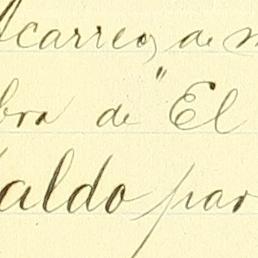 Acarreo, de m
bra de "El
aldo par